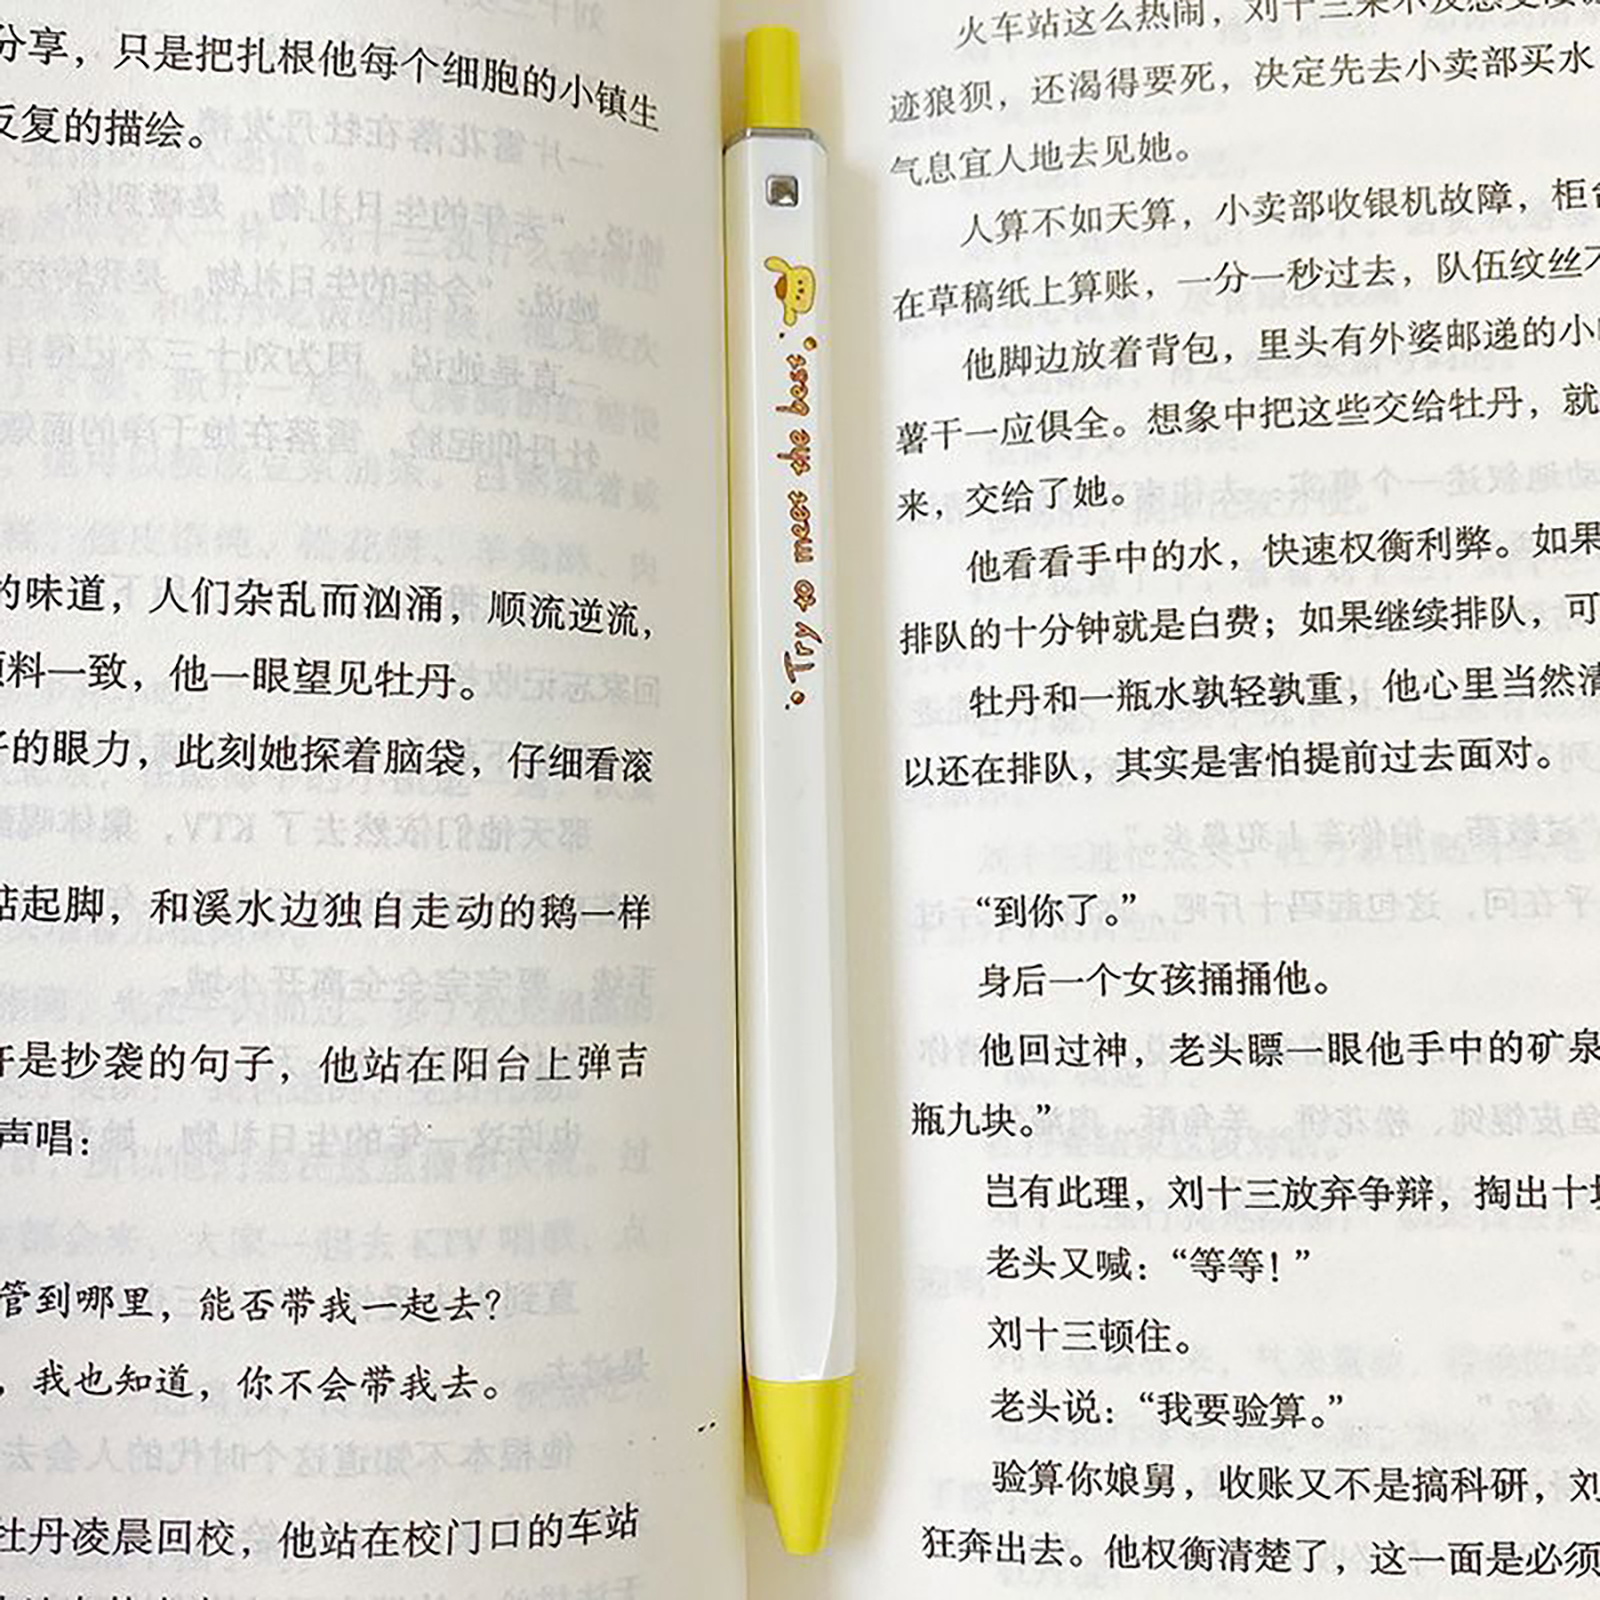 分享，只是把扎根他每个细胞的小镇生
反复的描绘。
的味道，人们杂乱而汹涌，顺流逆流，
料一致，他一眼望见牡丹。
的眼力，此刻她探着脑袋，仔细看滚
踮起脚，和溪水边独自走动的鹅一样
是抄袭的句子，他站在阳台上弹吉
声唱：
管到哪里，能否带我一起去？
，我也知道，你不会带我去。
牡丹凌晨回校，他站在校门口的车站
Try to meet the best
火车站这么热闹，刘十三来不及感受
迹狼狈，还渴得要死，决定先去小卖部买水
气息宜人地去见她。
人算不如天算，小卖部收银机故障，柜台
在草稿纸上算账，一分一秒过去，队伍纹丝不
他脚边放着背包，里头有外婆邮递的小
薯干一应俱全。想象中把这些交给牡丹，就
来，交给了她。
他看看手中的水，快速权衡利弊。如果
排队的十分钟就是白费；如果继续排队，可
牡丹和一瓶水孰轻孰重，他心里当然清
以还在排队，其实是害怕提前过去面对。
“到你了。”
身后一个女孩捅捅他。
他回过神，老头瞟一眼他手中的矿泉
瓶九块。”
岂有此理，刘十三放弃争辩，掏出十块
老头又喊：“等等！”
刘十三顿住。
老头说：“我要验算。”
验算你娘舅，收账又不是搞科研，刘
狂奔出去。他权衡清楚了，这一面是必须